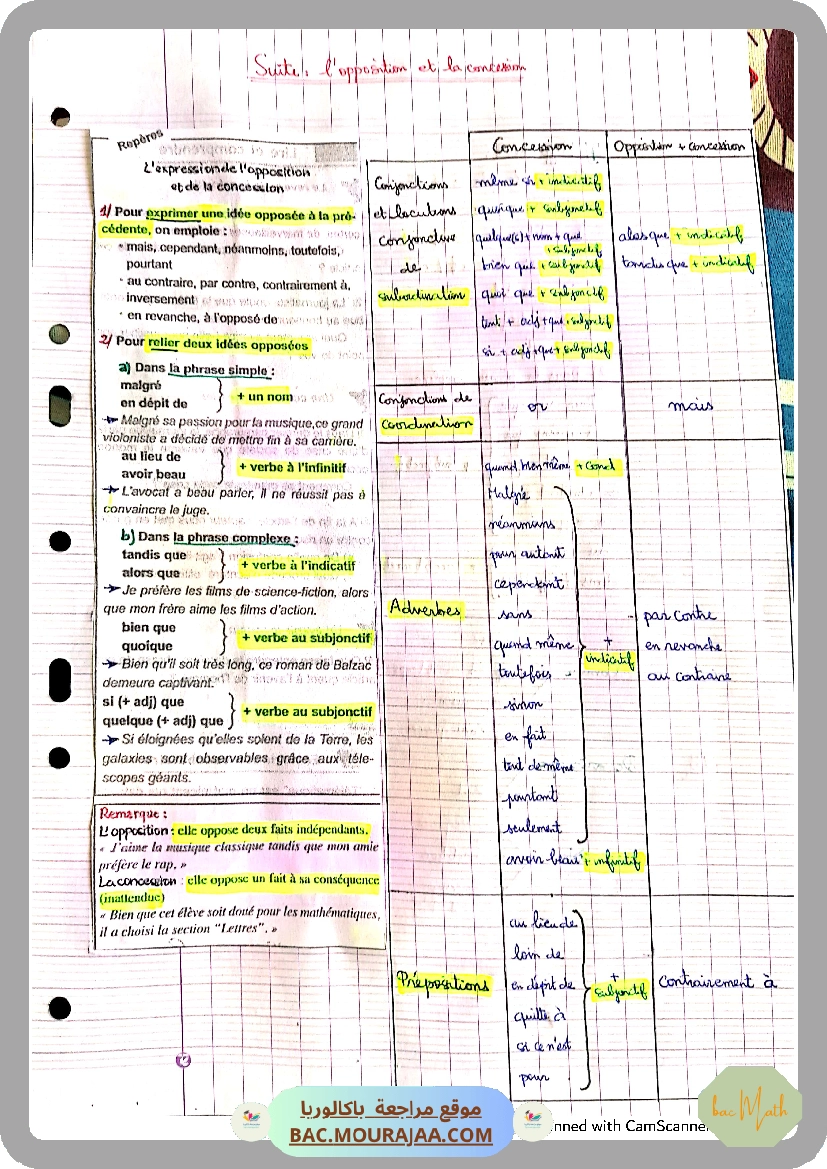 Suite : l'opposition et la concession
Repères
L'expression de l'opposition
et de la concession
1/ Pour exprimer une idée opposée à la pré-
cédente, on emploie :
• mais, cependant, néanmoins, toutefois,
pourtant
• au contraire, par contre, contrairement à,
inversement
• en revanche, à l'opposé de
2/ Pour relier deux idées opposées
a) Dans la phrase simple :
malgré
en dépit de
+ un nom
Malgré sa passion pour la musique, ce grand
violoniste a décidé de mettre fin à sa carrière.
au lieu de
avoir beau
+ verbe à l'infinitif
L'avocat a beau parler, il ne réussit pas à
convaincre le juge.
b) Dans la phrase complexe :
tandis que
alors que
+ verbe à l'indicatif
Je préfère les films de science-fiction, alors
que mon frère aime les films d'action.
bien que
quoique
+ verbe au subjonctif
Bien qu'il soit très long, ce roman de Balzac
demeure captivant.
si (+ adj) que
quelque (+ adj) que
+ verbe au subjonctif
Si éloignées qu'elles soient de la Terre, les
galaxies sont observables grâce aux téle-
scopes géants.
Remarque :
L'opposition : elle oppose deux faits indépendants.
« J'aime la musique classique tandis que mon amie
préfère le rap. »
La concession : elle oppose un fait à sa conséquence
(inattendue)
« Bien que cet élève soit doué pour les mathématiques,
il a choisi la section "Lettres". »
Concession
Opposition + concession
Conjonctions
et locutions
conjonctive
de
subordination
même si + indicatif
quoique + subjonctif
quelque(s) + nom + que
+ subjonctif
bien que + subjonctif
quoi que + subjonctif
tout + adj + que + subjonctif
si + adj + que + subjonctif
alors que + indicatif
tandis que + indicatif
Conjonctions de
coordination
or
mais
Adverbes
quand bien même + Cond
Malgré
néanmoins
pour autant
cependant
sans
quand même
toutefois
sinon
en fait
tout de même
pourtant
seulement
+
indicatif
avoir beau + infinitif
par contre
en revanche
au contraire
Prépositions
au lieu de
loin de
en dépit de
quitte à
si ce n'est
pour
+
subjonctif
Contrairement à
موقع مراجعة باكالوريا
BAC.MOURAJAA.COM
nned with CamScanner
bac Math